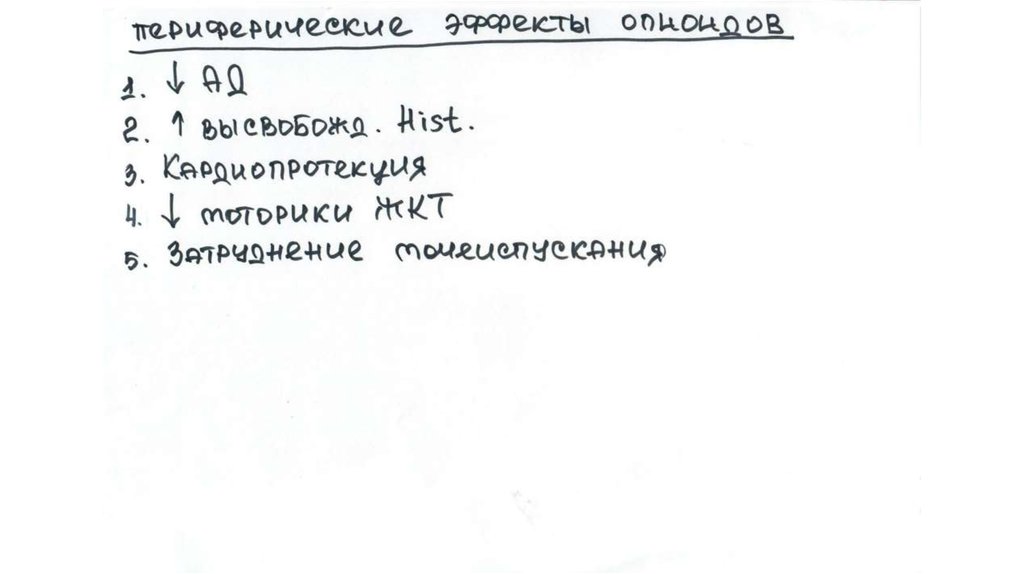 периферические эффекты опиоидов
1. ↓ АД
2. ↑ высвобожд. Hist.
3. Кардиопротекция
4. ↓ моторики ЖКТ
5. Затруднение мочеиспускания